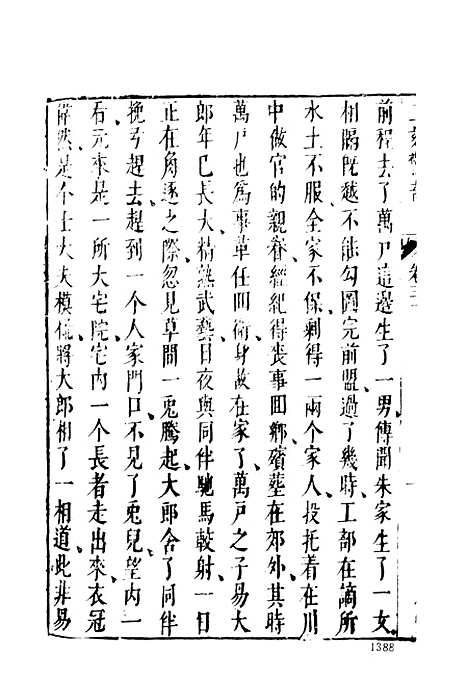 前程去了萬戶這邊生了一男傳聞朱家生了一女
相隔既越不能勾圓完前盟過了幾時工部在謫所
水土不服全家不保剩得一兩個家人投托着在川
中做官的親眷經紀得喪事回鄉殯塟在郊外其時
萬戶也為事革任回衛身故在家了萬戶之子易大
郎年已長大精熟武藝日夜與同伴馳馬較射一日
正在角逐之際忽見草間一兎騰起大郎舍了同伴
挽弓趕去趕到一個人家門口不見了兎兒望內一
看元來是一所大宅院宅內一個長者走出來衣冠
偉然是個士大夫模樣將大郎相了一相道此非易
1388